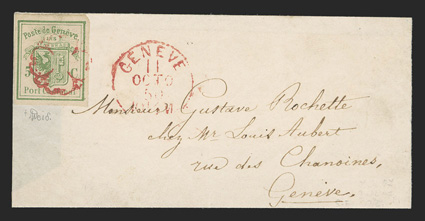 Poste de Genève
5 C
Port
GENÈVE
11
OCTO
Monsieur Gustave Rochette
chez Mr Louis Aubert
rue des Chanoines,
Genève.